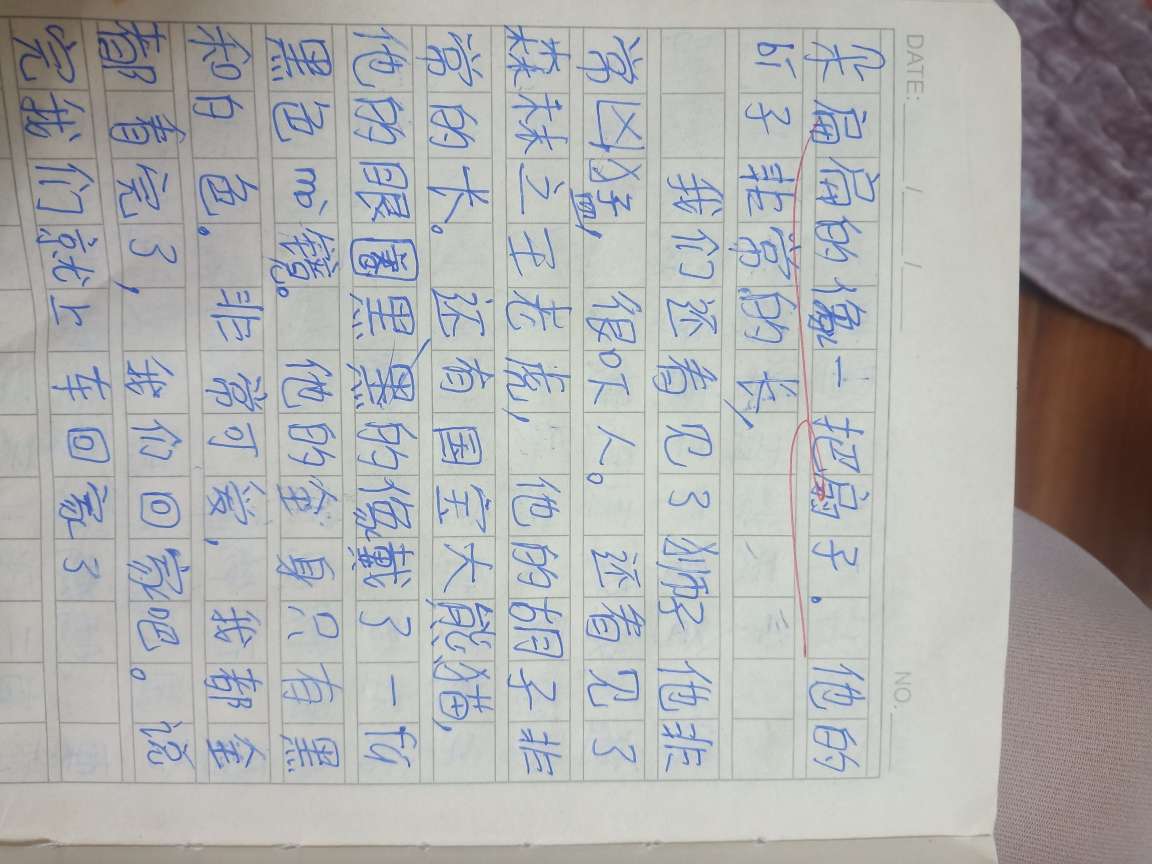 DATE: ___/___/___ NO.___
朵扁扁的像一把扇子. 他的
bí子非常的长,
我们还看见了狮子他非
常凶猛, 很吓人。还看见了
森林之王老虎, 他的胡子非
常的大。还有国宝大熊猫,
他的眼圈黑黑的像戴了一
黑色mò镜。他的全身只有黑
和白色. 非常可爱, 我都全
都看完了, 我们回家吧。说
完我们就上车回家了